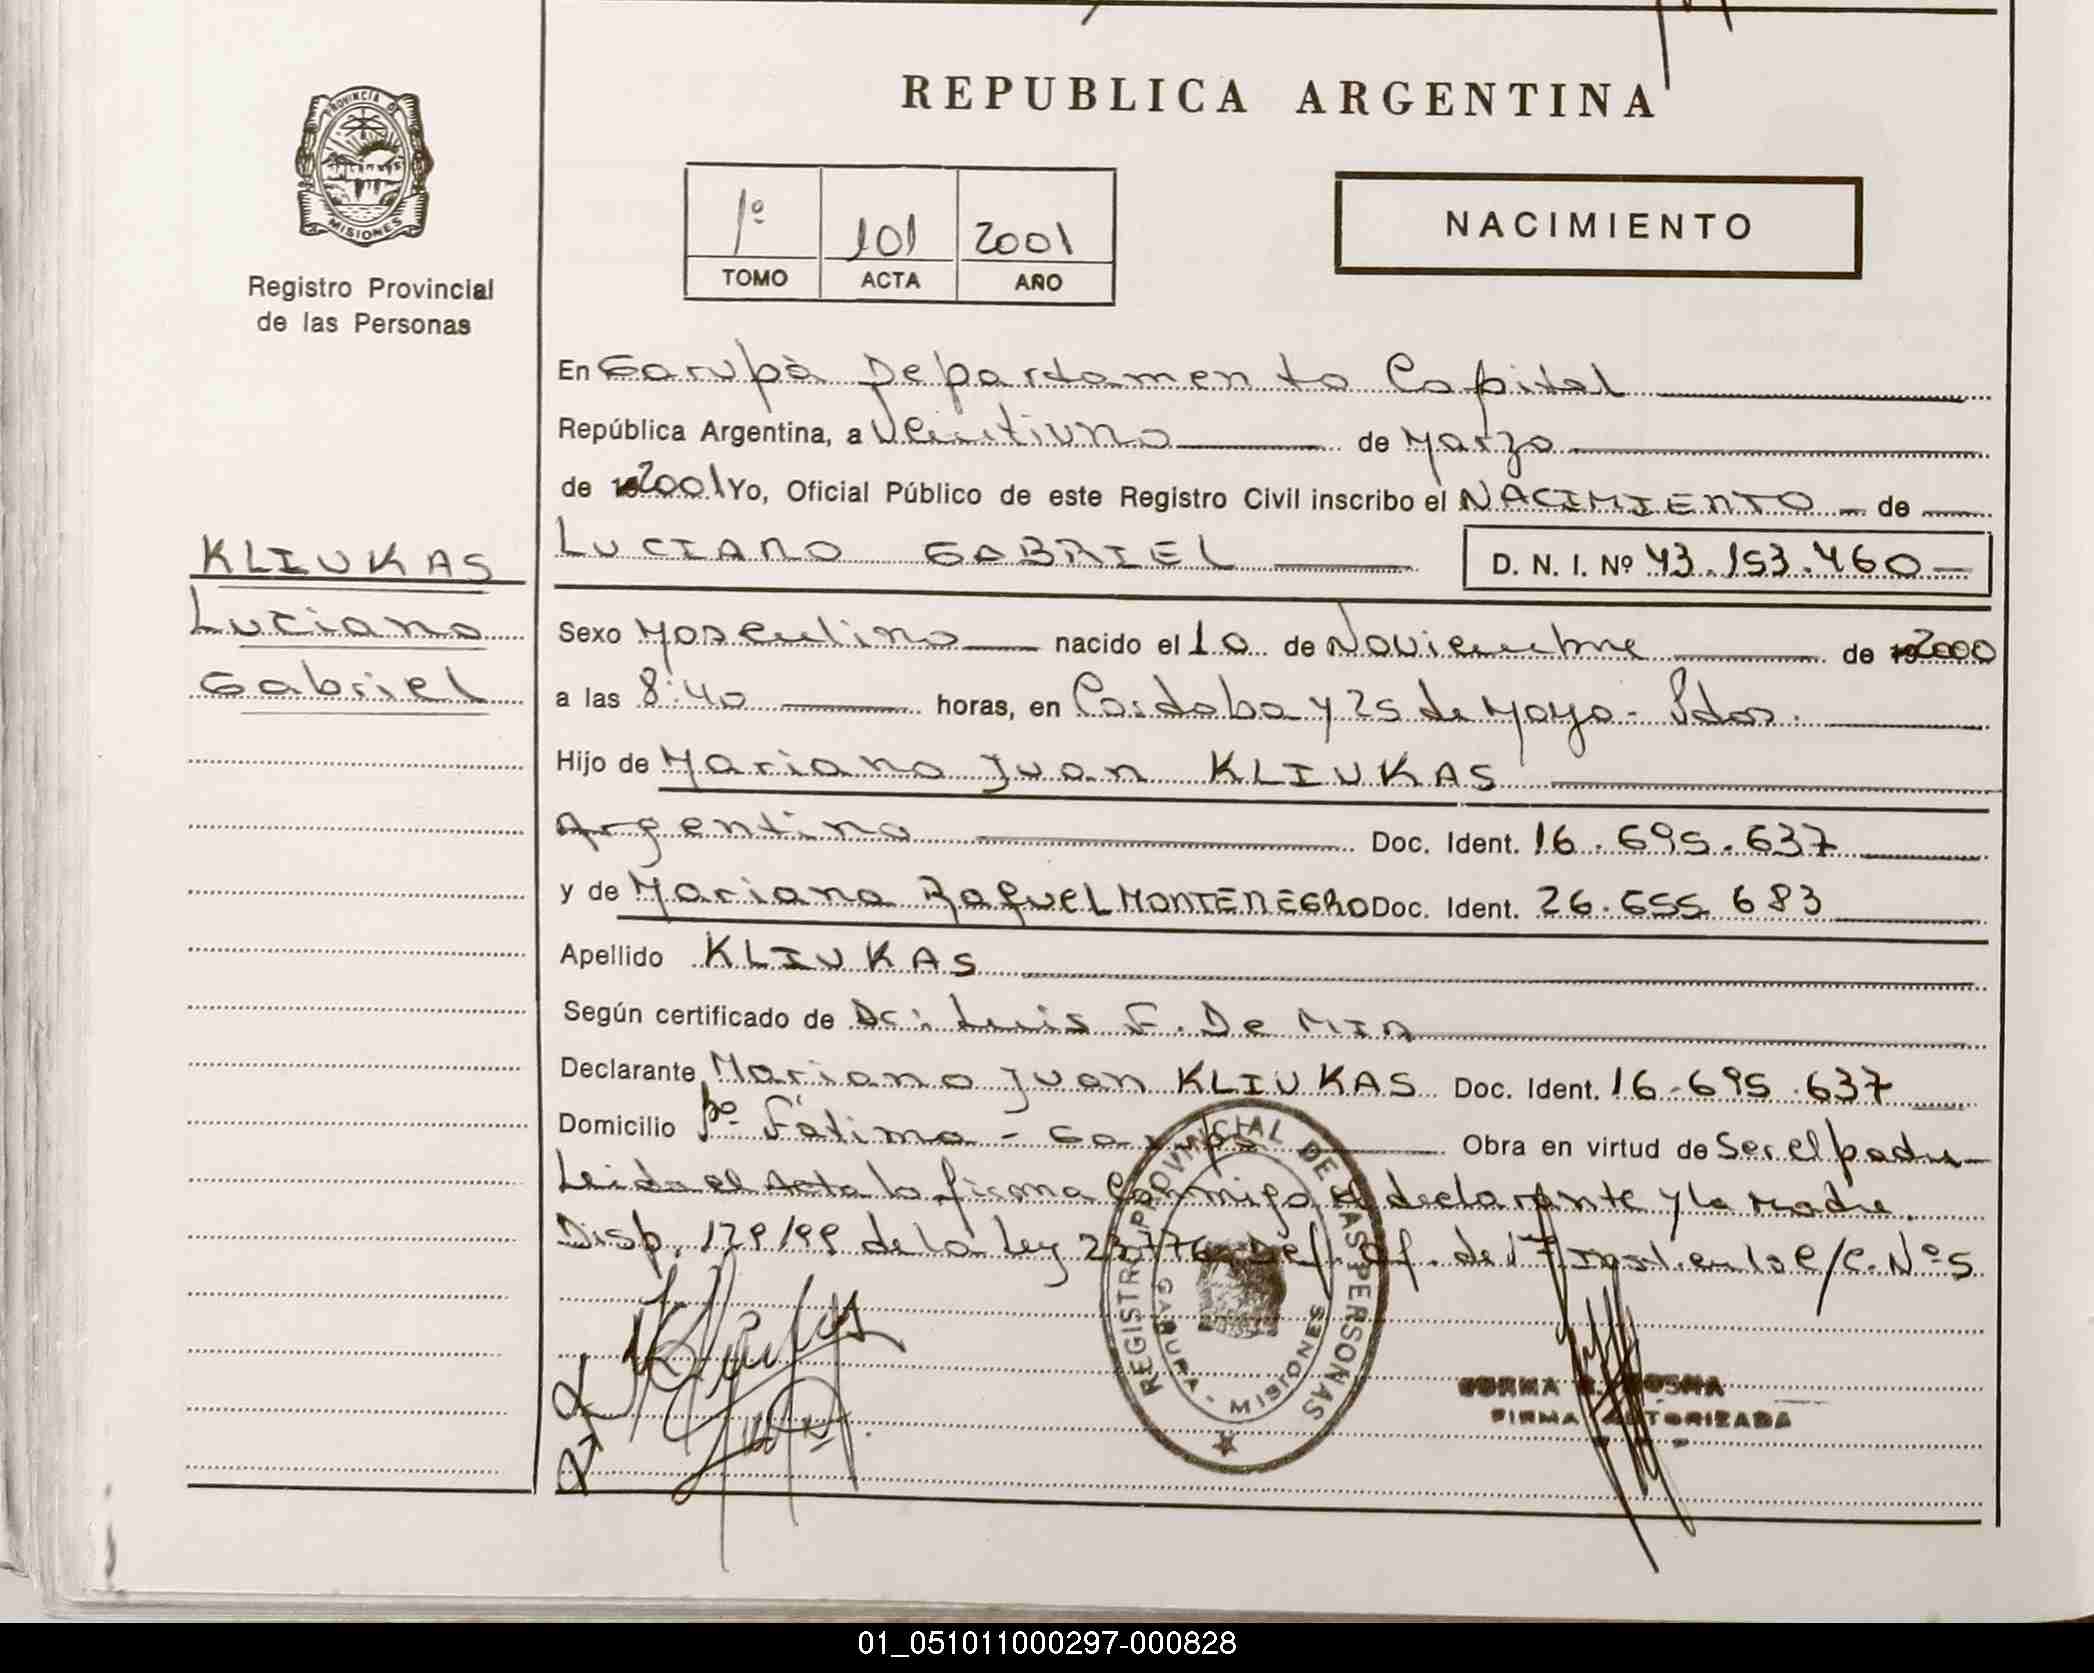 REPUBLICA ARGENTINA
PROVINCIA DE
MISIONES
Registro Provincial
de las Personas
1º 101 2001
TOMO ACTA AÑO
NACIMIENTO
En Garupà Departamento Capital
República Argentina, a Veintiuno de Marzo
de 2001 Yo, Oficial Público de este Registro Civil inscribo el NACIMIENTO de
KLIUKAS
Luciano
Gabriel
LUCIANO GABRIEL D. N. I. Nº 43.153.460
Sexo Masculino nacido el 10 de Noviembre de 2000
a las 8:40 horas, en Cordoba y 25 de Mayo - Pdas.
Hijo de Mariano Juan KLIUKAS
Argentino Doc. Ident. 16.695.637
y de Mariana Raquel MONTENEGRO Doc. Ident. 26.655 683
Apellido KLIUKAS
Según certificado de Dr: Luis F. De MIA
Declarante Mariano Juan KLIUKAS Doc. Ident. 16-695.637
Domicilio Bº Fátima - Garupa Obra en virtud de Ser el padre
Leida el Acta la firma Conmigo el declarante y la Madre.
Disp. 179/99 de la Ley 23776 Def. Of. de 17 Inst. en la C/C. Nº 5
REGISTRO PROVINCIAL DE LAS PERSONAS
GARUPA - MISIONES
FIRMA AUTORIZADA
01_051011000297-000828